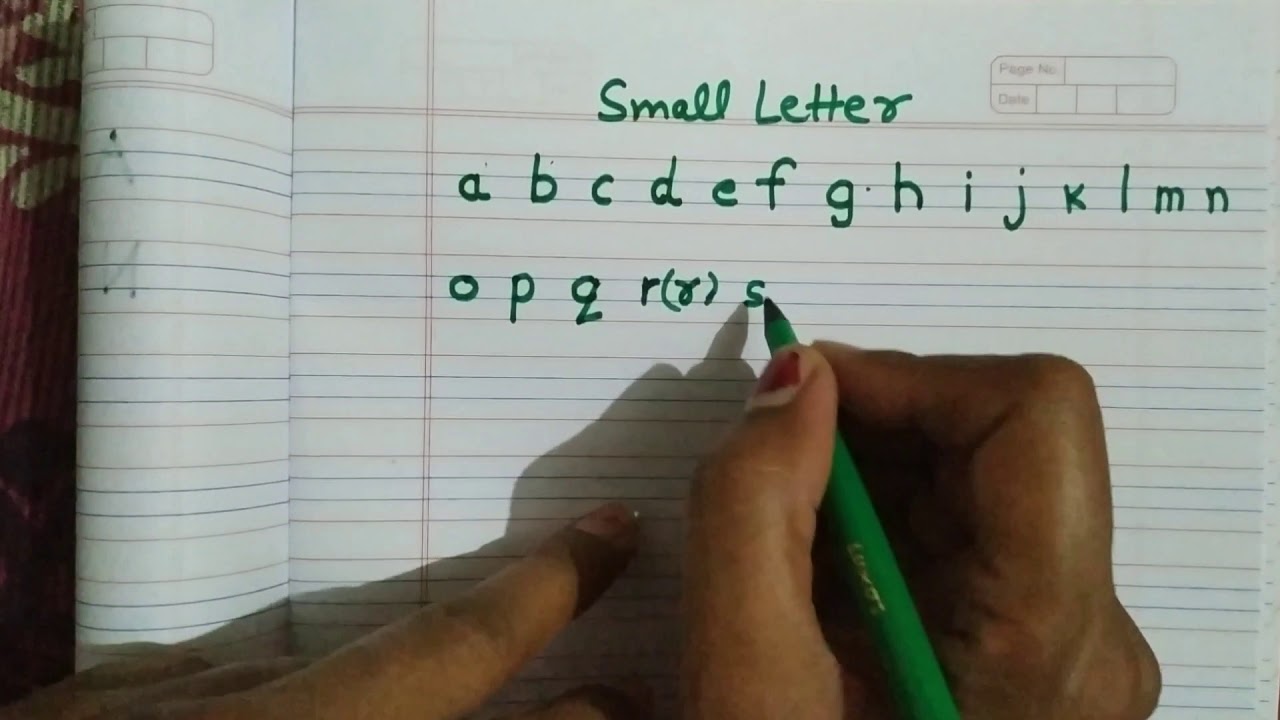 Page No.
Date
Small Letter
a b c d e f g h i j k l m n
o p q r(r) s